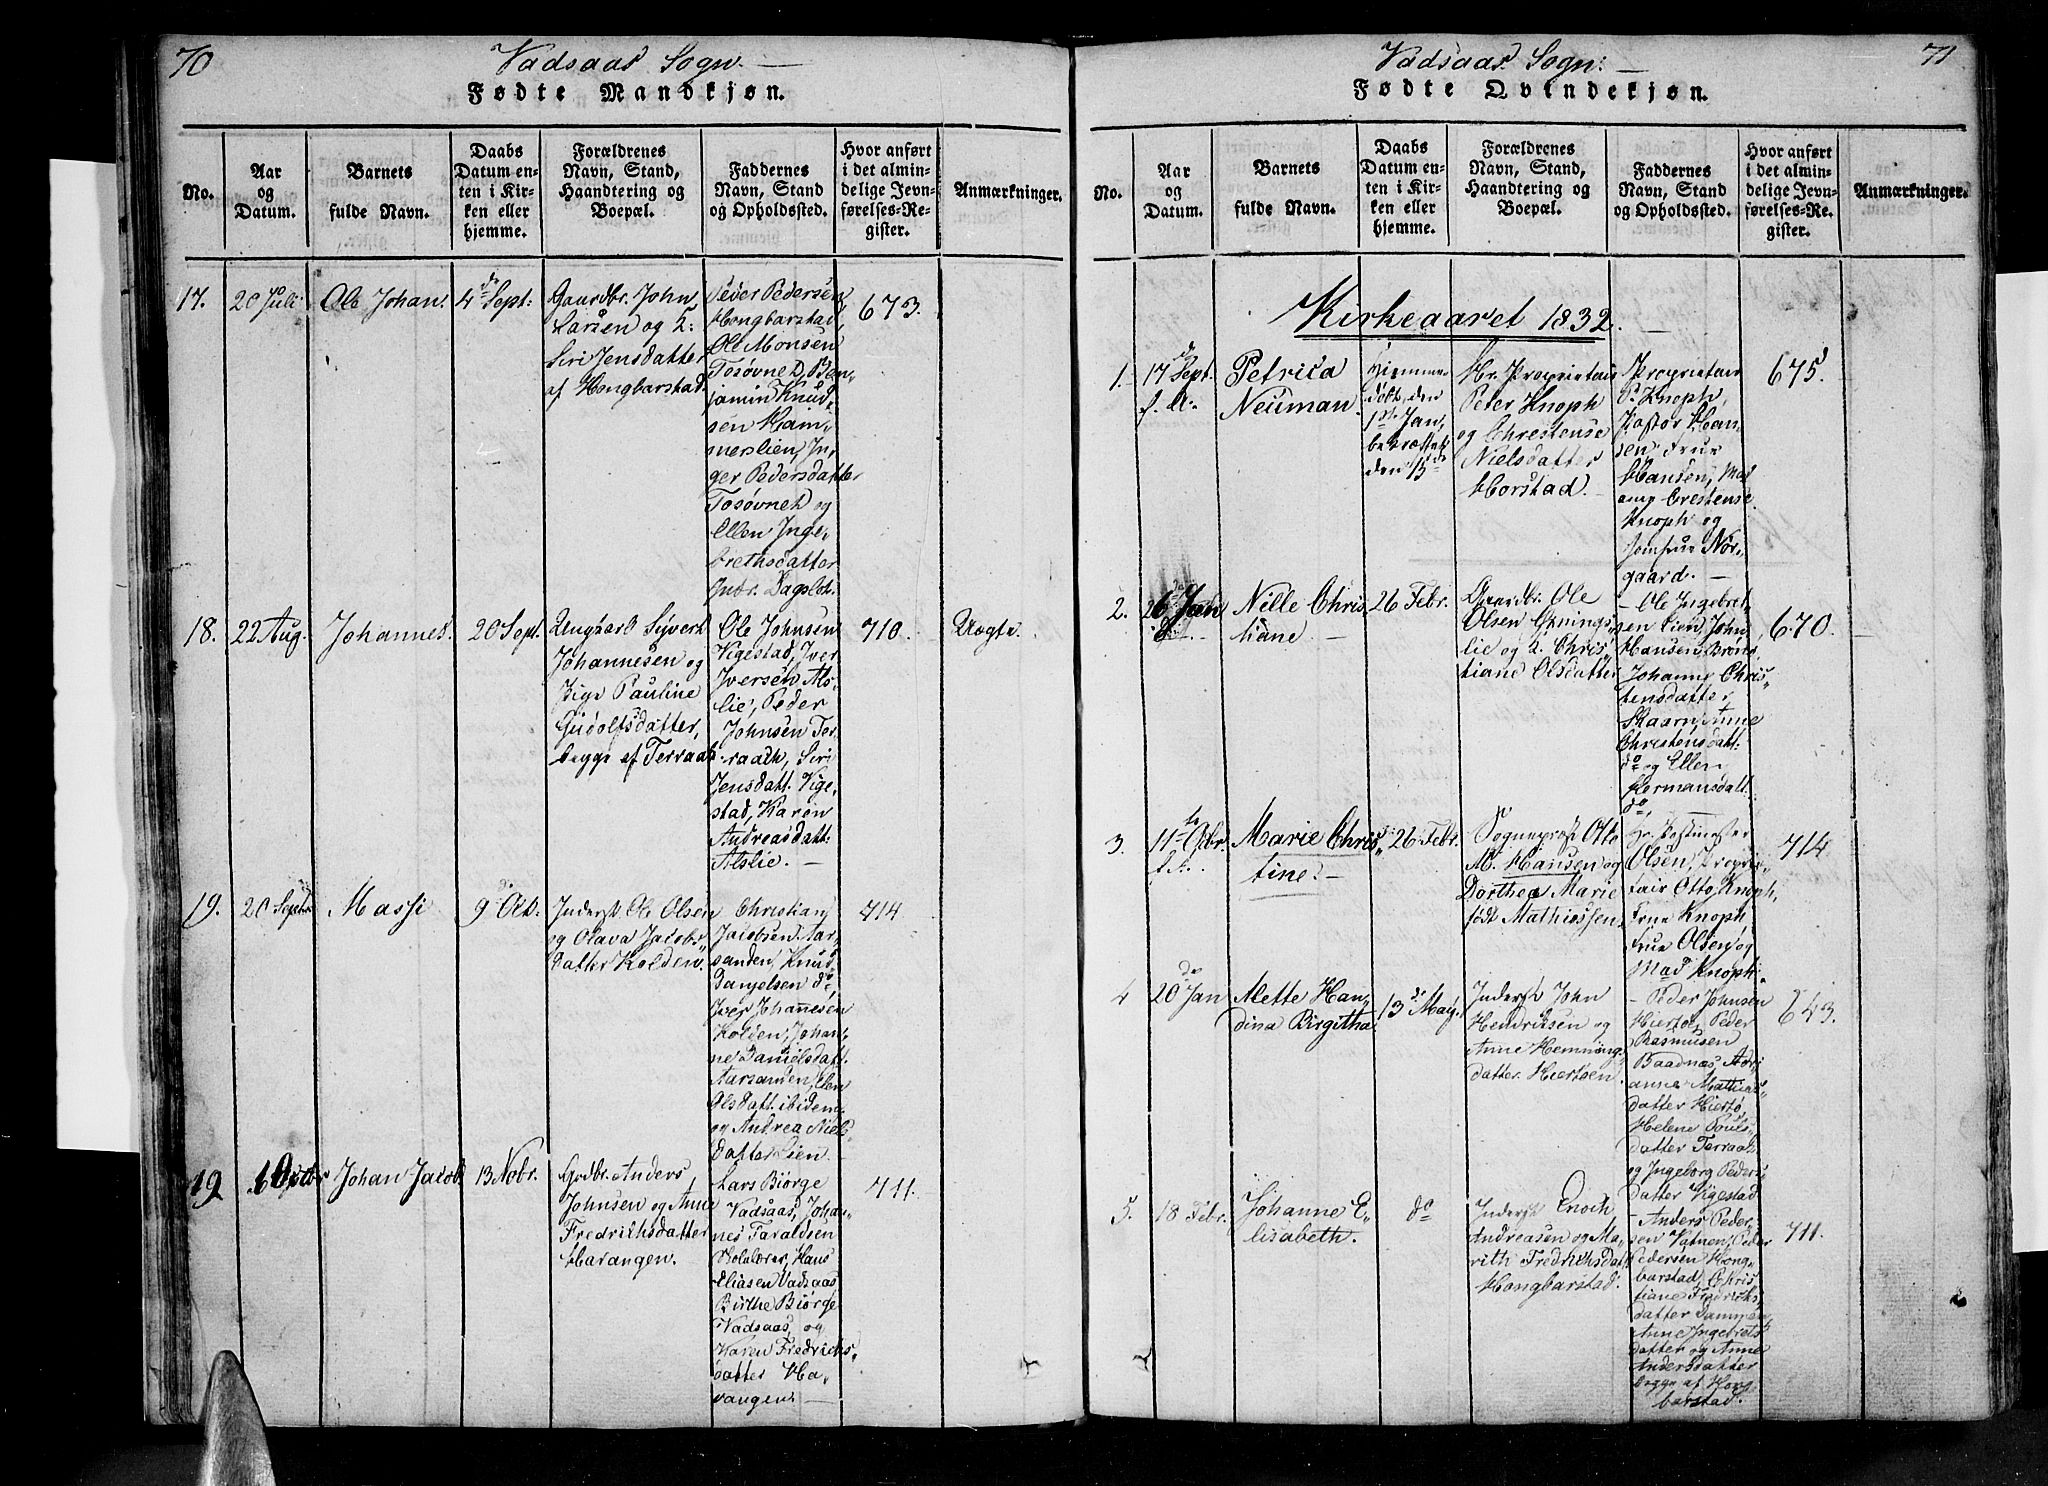 70
Vadsaas Sogn.
Fødte Mandkjøn.
No.
Aar
og
Datum.
Barnets
fulde Navn.
Daabs
Datum en-
ten i Kir-
ken eller
hjemme.
Forældrenes
Navn, Stand,
Haandtering og
Boepæl.
Faddernes
Navn, Stand
og Opholdssted.
Hvor anført
i det almin-
delige Jevn-
førelses-Re-
gister.
Anmærkninger.
17.
20 Juli
Ole Johan.
4de Sept:
Gaardbr. John
Larsen og K:
Siri Jensdatter
af Hongbarstad.
Peder Pedersen
Hongbarstad,
Ole Monsen
Tosøvned, Ben-
jamin Knud-
sen Ham-
merslien, In-
ger Pedersdatter
Tosøvned og
Ellen Inge-
brethsdatter
Indr. Dagslot.
673.
18.
22 Aug.
Johannes.
20 Sept.
Ungkarl Syvert
Johannesen og
Pige Pauline
Gudolfsdatter,
begge af Terraak
Ole Johnsen
Vigestad, Iver
Iversen Als-
lie, Peder
Johnsen Ter-
raakh, Siri
Jensdatt. Vige-
stad, Karen
Andreasdatt:
Alslie. —
710.
Uægte.
19.
20 Sept.
Massi
9de Oct.
Inderst Ole Olsen
og Olava Jacobs-
datter Kolden.
Christian
Jacobsen Aar-
sanden, Knud
Danjelsen do,
Iver Johannesen
Kolden, Johan-
ne Danielsdatt.
Aarsanden, Elen
Olsdatt. ibidem
og Andrea Niels-
datter Lien.
714
19
6 Octbr
Johan Jacob
13 Nobr.
Grdbr. Anders
Johnsen og Anne
Fredrichsdatter
Harangen.
Lars Biørge
Vadsaas, Johan-
nes Faraldsen
Holulører, Hans
Eliasen Vadsaas
Birthe Biørge
Vadsaas, og
Karen Fredrichs-
datter Ha-
rangen. —
711.
71
Vadsaas Sogn:
Fødte Qvindekjøn.
No.
Aar
og
Datum.
Barnets
fulde Navn.
Daabs
Datum en-
ten i Kir-
ken eller
hjemme.
Forældrenes
Navn, Stand,
Haandtering og
Boepæl.
Faddernes
Navn, Stand
og Opholdssted.
Hvor anført
i det almin-
delige Jevn-
førelses-Re-
gister.
Anmærkninger.
Kirkeaaret 1832.
1.
17de Sept.
f. A:
Petrica
Neuman.
Hiemme-
døbt, den
1ste Jan,
bekræftet
den 15de
Hr. Proprietair
Peter Knoph
og Christense
Nielsdatter
Horstad.
Proprietair
P. Knoph,
Pastor Han-
sen, Frue
Hansen, Mad
Crestense
Knoph og
Jomfrue Nor-
gaard. —
675.
2.
26de Jan
Nille Chris-
tiane —
26 Febr.
Gaardbr. Ole
Olsen
lie og K. Chris-
tiane Olsdatter
— Ole Ingebret-
sen Lien, John
Hansen Brons
Johanne Chris-
tensdatter
Skaarn, Anne
Christensdatt:
do og Ellen
Hermansdatt:
do,
670.
3.
11te 9br.
f. A.
Marie Chris-
tine. —
26 Febr.
Sogneprest Otto
M. Hansen og
Dorthea Marie
født Mathiessen.
Hr. Postmester
Olsen, Propri-
tair Otto Knoph,
Frue Knoph
Frue Olsen og
Mad Knoph.
714
4
20de Jan
Mette Han-
dina Birgitha
13de May.
Inderst John
Hendricksen og
Anne Hemming-
datter Hiertøen.
— Peder Johnsen
Hiertø, Peder
Rasmusen
Baadnas, Adri-
anna Mathias-
datter Hiertø,
Helene Pouls-
datter Terraak
og Ingeborg Peders-
datter Vigestad
643.
5.
18 Febr.
Johanne E-
lisabeth.
do
Inderst Enoch
Andreasen og Ma-
rith Fredrichsdatt.
Hongbarstad.
— Anders Peder-
sen Vatnen, Peder
Pedersen Hong-
barstad, Chris-
tiane Fredrichs-
datter
Anne Ingebrets-
datter og Anne
Andersdatter
begge af Hong-
barstad.
711.